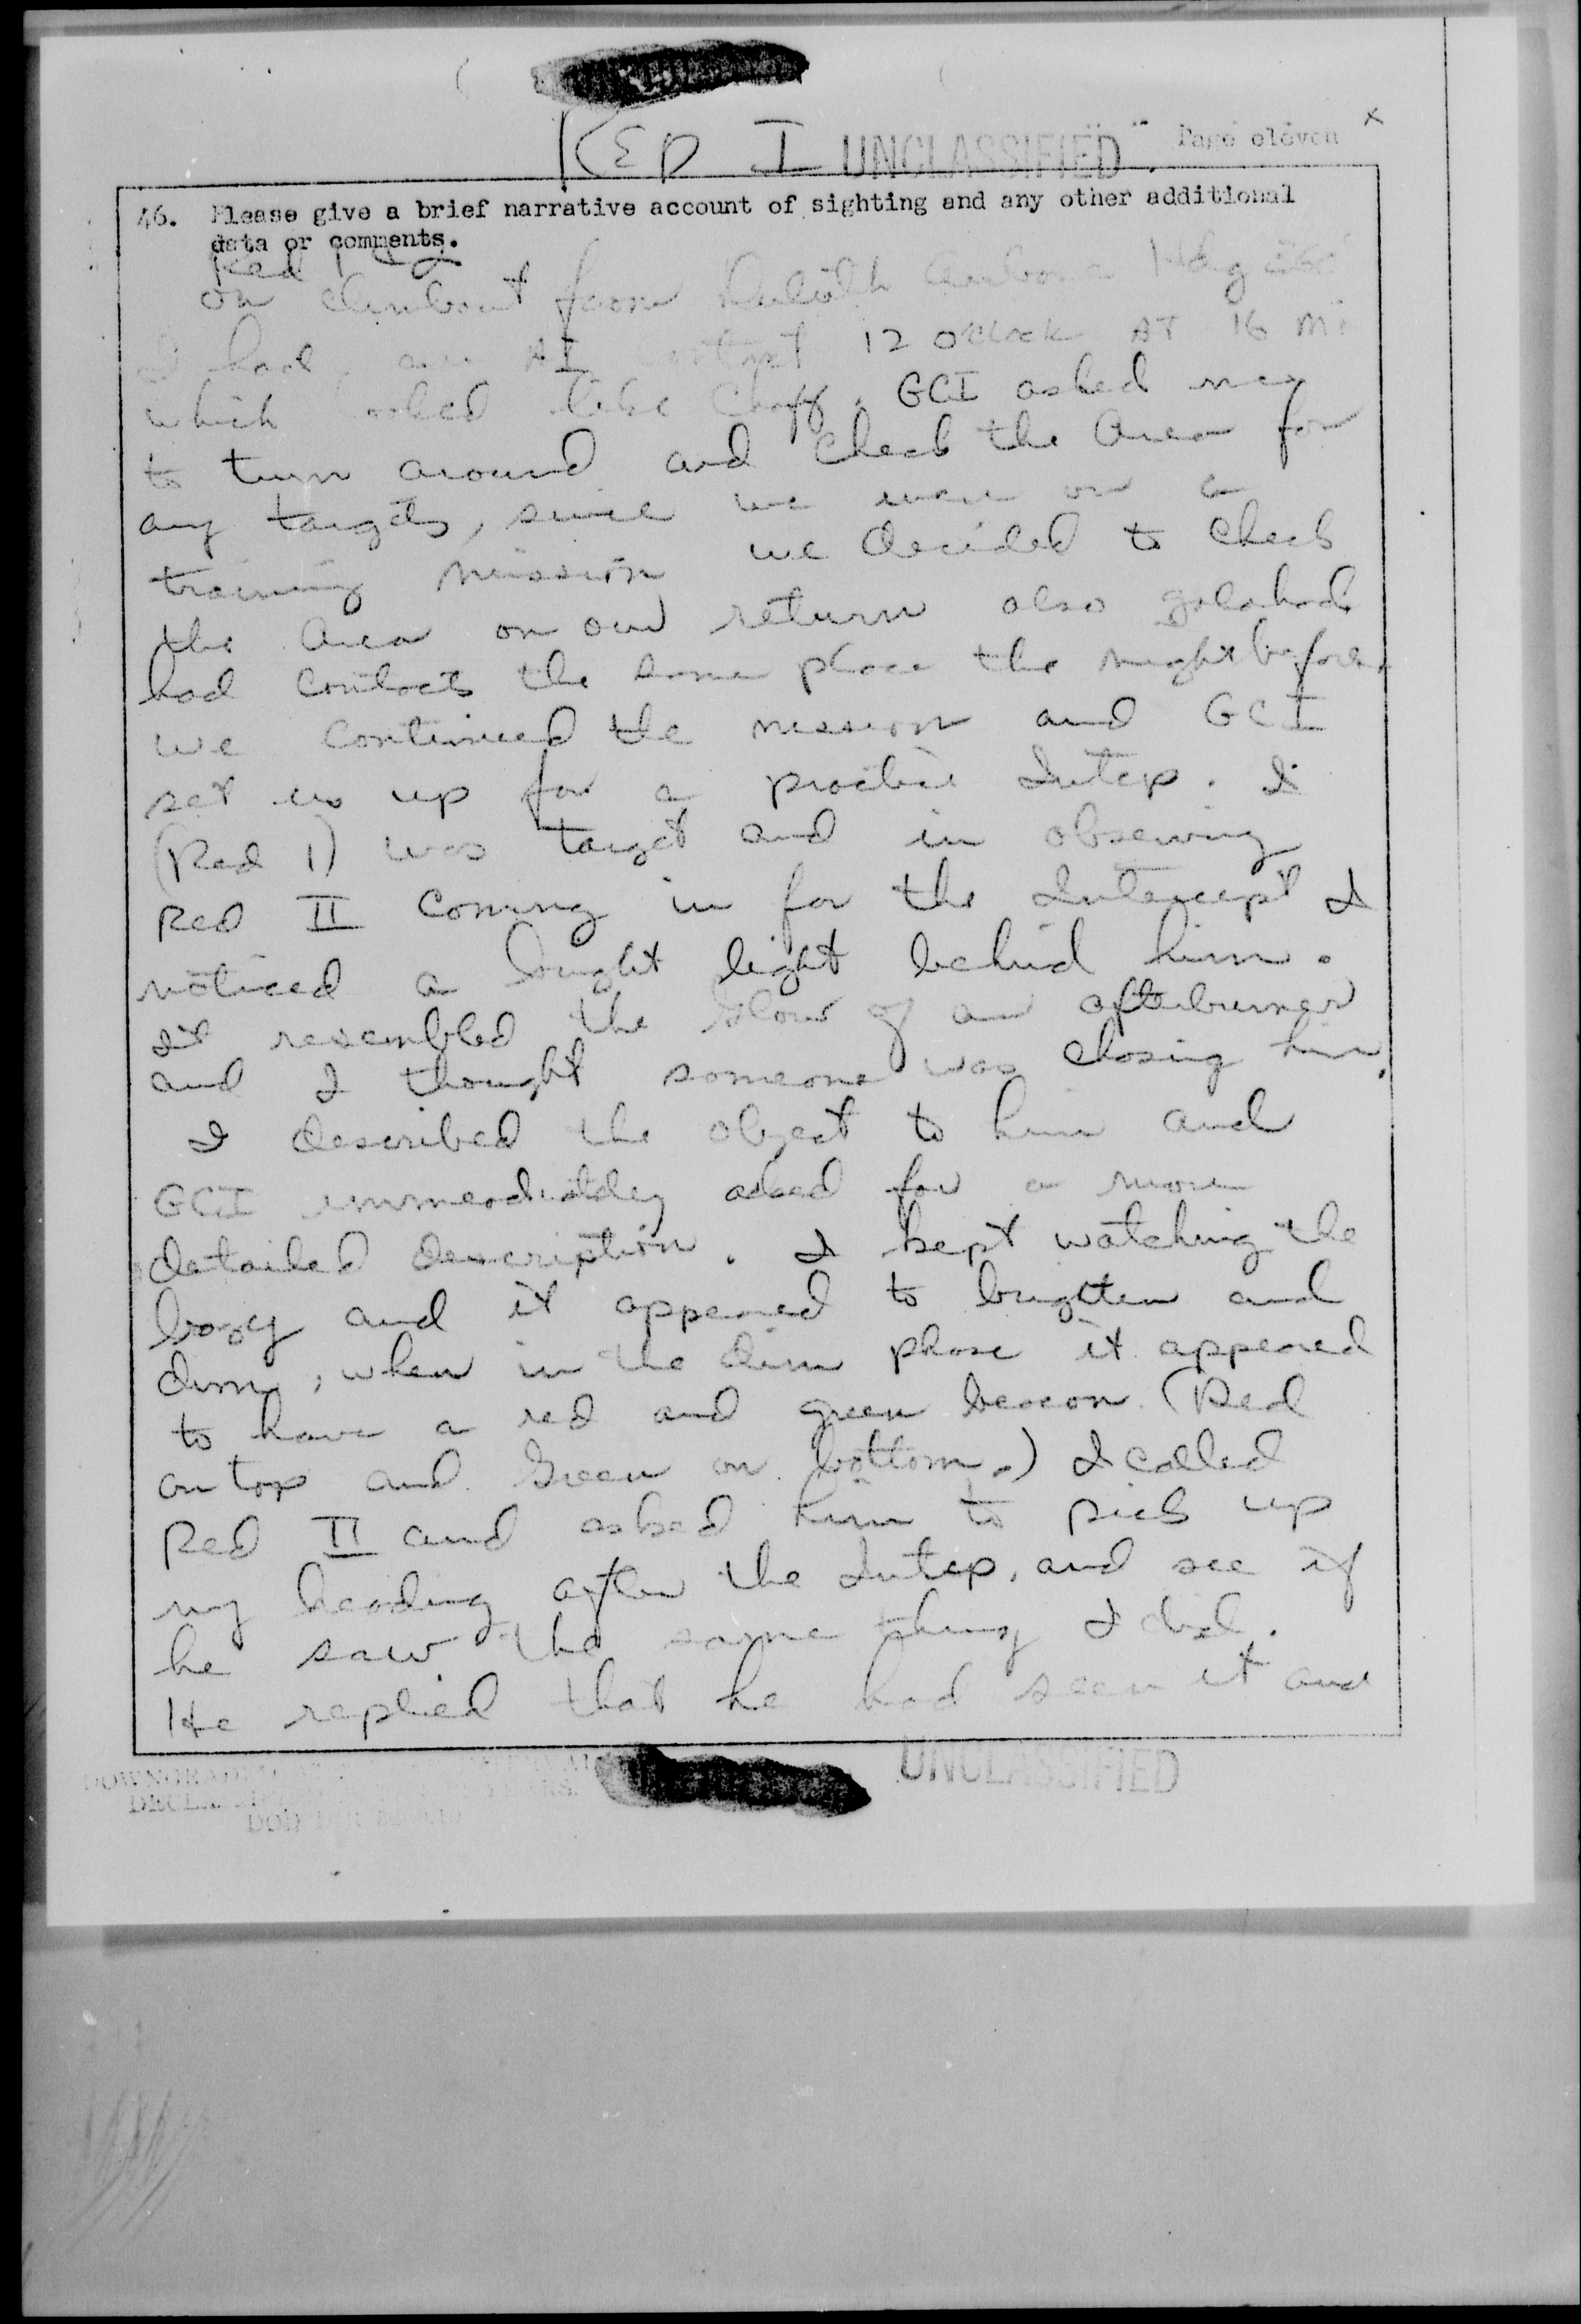 RED I UNCLASSIFIED Page eleven
46. Please give a brief narrative account of sighting and any other additional
data or comments.
Red 1
on climbout from Duluth airborne Hdg 360°
I had an AI contact 12 o'clock AT 16 mi
which looked like Chaff. GCI asked me
to turn around and check the area for
any targets, since we were on a
training mission we decided to check
the area on our return also
had contacts the same place the night before.
we continued the mission and GCI
set us up for a practice Intcp. I
(Red 1) was target and in observing
Red II coming in for the Intercept I
noticed a bright light behind him.
It resembled the Glow of an afterburner
and I thought someone was closing him.
I described the object to him and
GCI immeadiatley asked for a more
detailed description. I kept watching the
bogy and it appeared to brighten and
dim, when in the dim phase it appeared
to have a red and green beacon (Red
on top and Green on bottom.) I called
Red II and asked him to pick up
my heading after the Intcp, and see if
he saw the same thing I did.
He replied that he had seen it and
UNCLASSIFIED